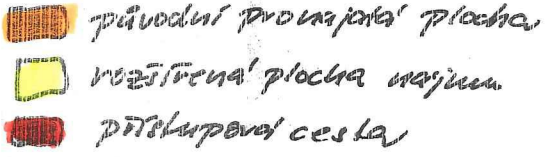 původní pronajatá plocha
rozšířená plocha nájmu
přístupová cesta